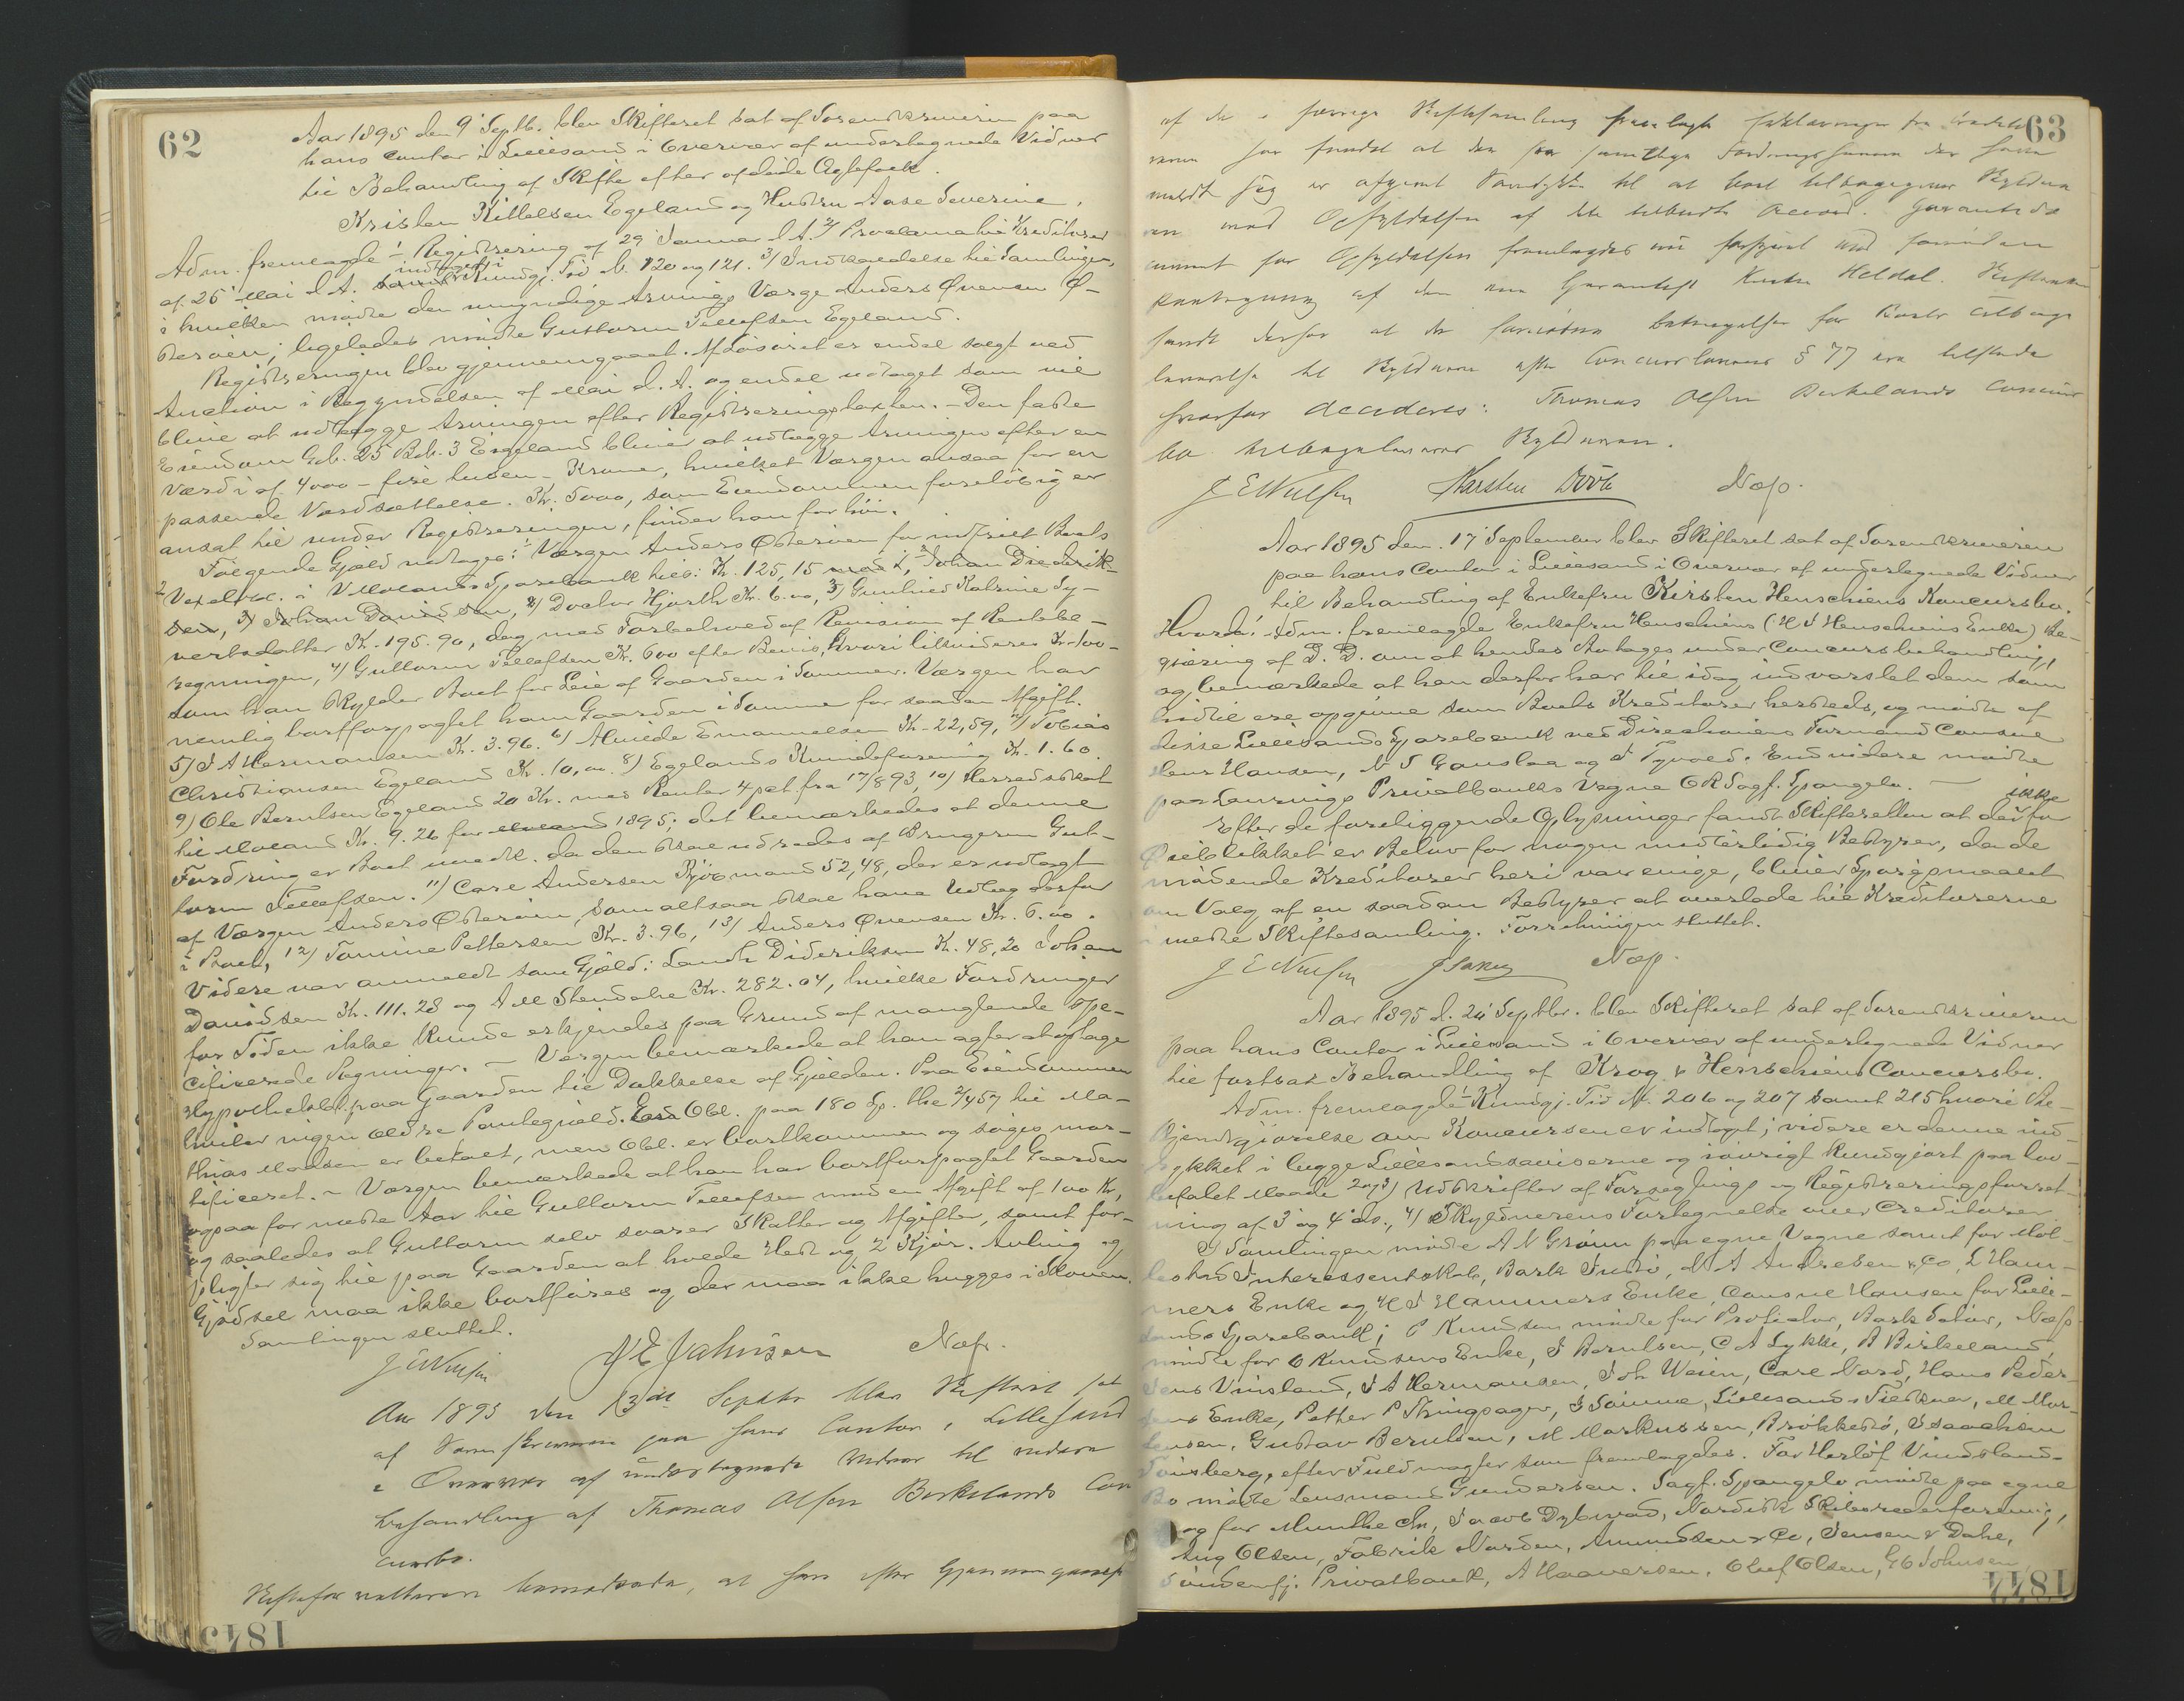 62
Aar 1895 den 9' Septb. blev Skifteret sat af Sorenskriveren paa
hans Contor i Lillesand i Overvær af undertegnede Vidner
til Behandling af Skifte efter afdøde Ægtefolk.
Kristen Kittelsen Egeland og Hustru Aase Severine.
Adm. fremlagde 1 Registrering af 29' Januar d. A. 2) Proclama til Kreditorer
af 25' Mai d. A. indtaget i Kundgj. Tid. N. 120 og 121. 3) Indkaldelse til Samlingen,
i hvilken mødte den umyndige Arvings Værge Anders Ovensen Ø-
sterøen; ligeledes mødte Guttorm Tellefsen Egeland.
Registreringen blev gjennemgaaet. Af Løsøret er endel solgt ved
Auction i Begyndelsen af Mai d. A. og endel udtaget som vil
blive at udlægge Arvingen efter Registreringstaxten. - Den faste
Eiendom Gb. 25 Bb. 3 Eigeland bliver at udlægge Arvingen efter en
Værdi af 4000 - fire tusen - Kroner, hvilket Værgen ansaa for en
passende Værdsættelse. Kr. 5000, som Eiendommen foreløbig er
ansat til under Registreringen, finder han for høi.
Følgende Gjæld vedtages: 1 Værgen Anders Østerøen for indfriet Boets
Vexelobl. i Vestlands Sparebank tils: Kr. 125,15 med
sen, 2) Doctor Hjorth Kr. 6.00, 3) Gunhild Katrine Sy-
vertsdatter Kr. 195.90, dog med Forbehold af Revision af Rentebe-
regningen, 4) Guttorm Tellefsen Kr. 600 efter Bevis, hvori likvideres Kr. 100 -
som han skylder Boet for Leie af Gaarden i Sommer. Værgen har
nemlig bortforpagtet ham Gaarden i Sommer for saadan Afgift.
5) J A Hermansen Kr. 3.96. 6) Alvilde Emanuelsen Kr. 22,59, 7) Tobias
Christiansen Egeland Kr. 10,00 8) Egelands Kundeforening Kr. 1.60
9) Ole Berulsen Egeland 20 Kr. med Renter 4 pct. fra 17/893, 10) Herredskat
til Moland Kr. 9.26 for 1895; det bemærkedes at denne
Fordring er Boet da den skal udredes af Brugeren Gut-
torm Tellefsen. 11) Carl Andersen Kjøbmand 52,48, der er udlagt
af Værgen Anders Østerøen som altsaa skal have Udlæg derfor
i Boet, 12) Tomine Pettersen Kr. 3.96, 13) Anders Ovensen Kr. 6.00.
Videre var anmeldt som Gjæld: Dideriksen Kr. 48,20 Johan
Davidsen Kr. 111.28 og A M Stendahl Kr. 282.04, hvilke Fordringer
for Tiden ikke kunde erkjendes paa Grund af manglende spe-
cificerede Regninger. - Værgen bemærkede at han agter at optage
Hypothekslaan paa Gaarden til Dækkelse af Gjælden. Paa Eiendommen
hviler ingen ældre Pantegjæld. Obl. paa 180 Sp. 2/4 57 til Ma-
thias Madsen er betalt, men Obl. er bortkommen og søges mor-
tificeret. - Værgen bemærkede at han har bortforpagtet Gaarden
ogsaa for næste Aar til Guttorm Tellefsen mod en Afgift af 100 Kr,
og saaledes at Guttorm selv svarer Skatter og Afgifter, samt for-
pligter sig til paa Gaarden at holde Hest og 2 Kjør. Avling og
Gjødsel maa ikke bortføres og der maa ikke hugges i Skoven.
Samlingen sluttet.
J E Nielsen J E Jahnsen Næp.
Aar 1895 den 13de Septbr blev Skifteret sat
af Sorenskriveren paa hans Contor i Lillesand
i Overvær af undertegnede Vidner til videre
behandling af Thomas Olsen Birkelands Con
cursbo.
Skifteforvalteren bemærkede, at han efter Gjennemgaaelse
63
af de i forrige Skiftesamling fremlagte Erklæringer fra Credito
rerne har fundet at den for samtlige Fordringshavere der have
meldt sig er afgivet Samtykke til at boet tilbagegives Skyldne
ren mod Opfyldelsen af den tilbudte Accord. Garantido
cument for Opfyldelsen fremlagdes nu forsynet med saadan
Paategning af den ene Garantist Heldal. Skifteretten
fandt derfor at de fornødne betingelser for Boets Tilbage
leverelse til Skyldneren efter Concurslovens § 77 ere tilstede
hvorfor decideres: Thomas Olsen Birkelands Concurs
bo tilbageleveres Skyldneren.
J E Nielsen Karsten Næp.
Aar 1895 den 17' September blev Skifteret sat af Sorenskriveren
paa hans Contor i Lillesand i Overvær af undertegnede Vidner
til Behandling af Enkefru Kirsten Henschiens Koncursbo.
Hvorda: Adm. fremlagde Enkefru Henschiens (H J Henschiens Enke) Be-
gjæring af D. D. om at hendes Bo tages under Concursbehandling,
og bemærkede at han derfor har til idag indvarslet dem som
hidtil ere opgivne som Boets Kreditorer hersteds, og mødte af
disse Lillesands Sparebank ved Directionens Formand Consul
Jens Hansen, N S Gauslaa og J Tyvold. Endvidere mødte
paa Privatbanks Vegne OR Sagf. Spangelo. -
Efter de foreliggende Oplysninger fandt Skifteretten at der ikke for
Øieblikket er Behov for nogen midlertidig Bestyrer, da de
mødende Kreditorer heri var enige, bliver Spørgsmaalet
om Valg af en saadan Bestyrer at overlade til Kreditorerne
i næste Skiftesamling. Forretningen sluttet.
J E Nielsen Næp.
Aar 1895 d. 24' Septbr. blev Skifteret sat af Sorenskriveren
paa hans Contor i Lillesand i Overvær af undertegnede Vidner
til fortsat Behandling af Krog & Henschiens Concursbo.
Adm. fremlagde 1 Kundgj. Tid. N. 206 og 207 samt 215 hvori Be-
kjendtgjørelse om Koncursen er indtaget; videre er denne ind-
rykket i begge Lillesandsaviserne og iøvrigt kundgjort paa lov-
befalet Maade 2 og 3) Udskrifter af Forseglings og Registreringsforret-
ning af 3' og 4' ds., 4) Skyldnerens Fortegnelse over Creditorer
I Samlingen mødte A N Grønn paa egne Vegne samt for Møl-
Interessentskab, Bark Juno, N A Andresen & Co, L Ham-
mers Enke og H J Hammers Enke, Consul Hansen for Lille-
sands Sparebank; P Knudsen mødte for Protector, Bark Solør, Næp
mødte for O Knudsens Enke, S Berulsen, C A Lykke, A Birkeland,
Jens Vinsland, J A Hermansen, Joh Weien, Carl Nord, Hans Peder-
sens Enke, Petter P Stingsager, J Lillesands Tidende, M Mor-
tensen, Gustav Berulsen, M Markussen, Brøkkestø, Isaachsen
Tønsberg, efter Fuldmagter som fremlagdes. For Herløf Vindsland
Bo mødte Lensmand Gundersen. Sagf. Spangelo mødte paa egne
og for Munthe Jacob Dybwad, Nordisk Skibsrederforening,
Aug Olsen, Fabrik Norden, Amundsen & Co, Jensen & Dahl,
Søndenfj. Privatbank, A Haaversen, Oluf Olsen, G C Johnsen